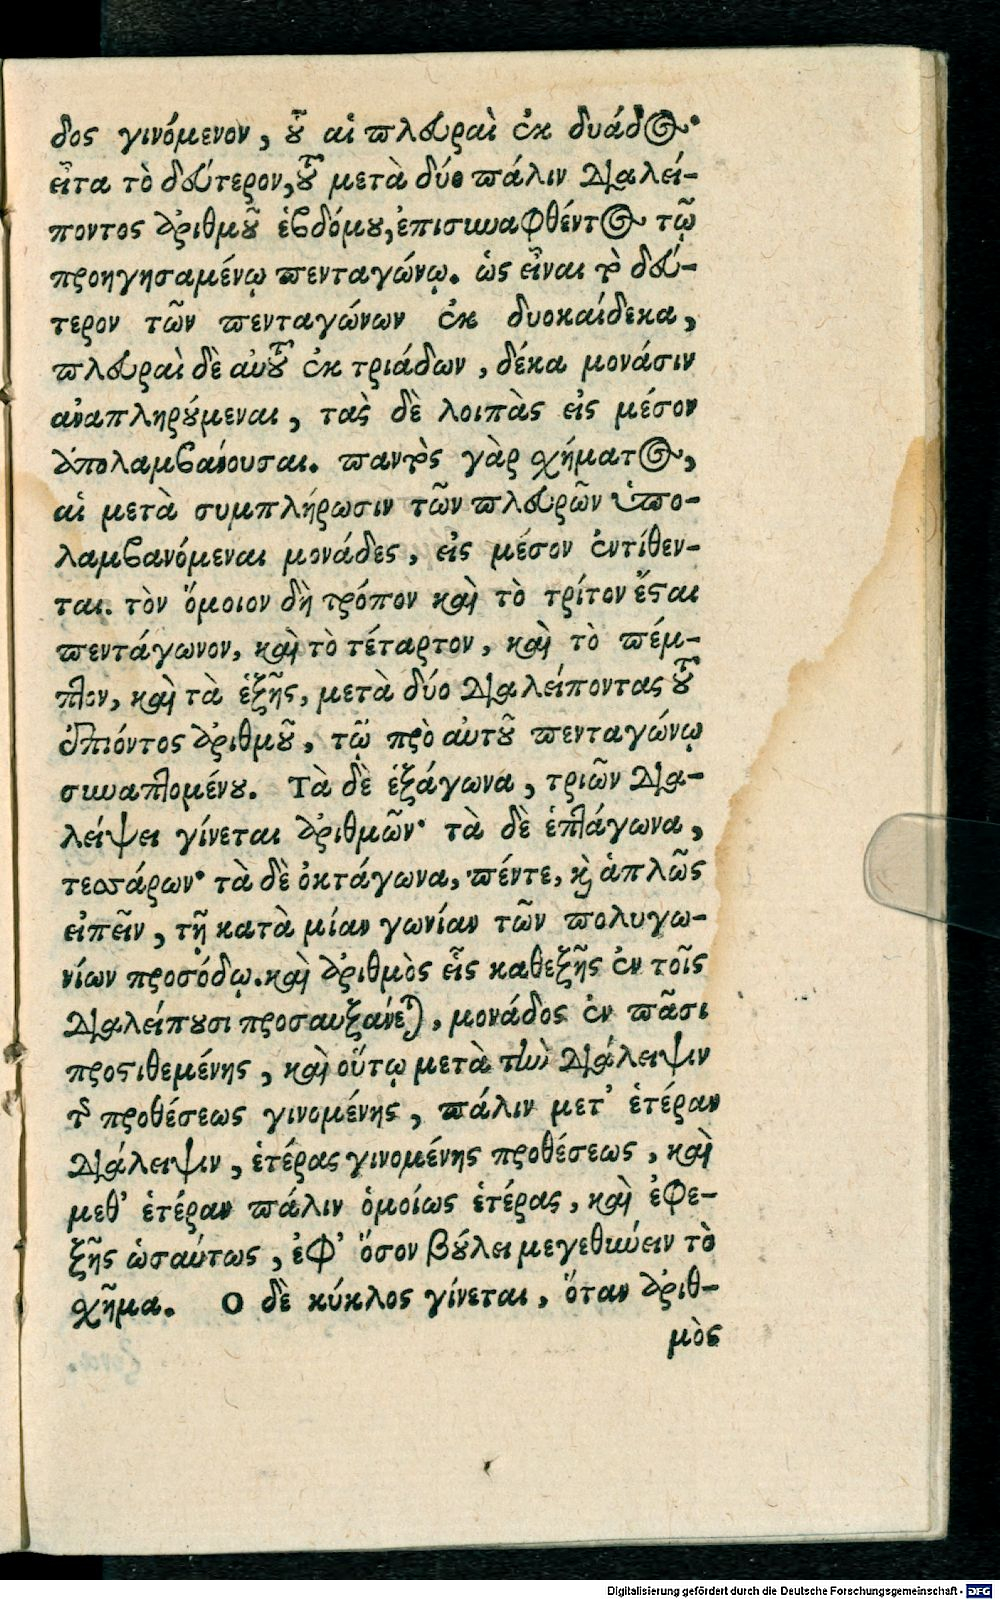 δος γινόμενον, οὗ αἱ πλευραὶ ἐκ δυάδος·
εἶτα τὸ δεύτερον, τοῦ μετὰ δύο πάλιν διαλεί-
ποντος ἀριθμοῦ ἑβδόμου, ἐπισυναφθέντος τῷ
προηγησαμένῳ πενταγώνῳ. ὡς εἶναι τὸ δεύ-
τερον τῶν πενταγώνων ἐκ δυοκαίδεκα,
πλευραὶ δὲ αὐτοῦ ἐκ τριάδων, δέκα μονάσιν
ἀναπληρούμεναι, τὰς δὲ λοιπὰς εἰς μέσον
ἀπολαμβάνουσαι. παντὸς γὰρ σχήματος,
αἱ μετὰ συμπλήρωσιν τῶν πλευρῶν ὑπο-
λαμβανόμεναι μονάδες, εἰς μέσον ἐντίθεν-
ται. τὸν ὅμοιον δὴ τρόπον καὶ τὸ τρίτον ἔσται
πεντάγωνον, καὶ τὸ τέταρτον, καὶ τὸ πέμ-
πτον, καὶ τὰ ἑξῆς, μετὰ δύο διαλείποντας τοῦ
ἐπιόντος ἀριθμοῦ, τῷ πρὸ αὐτοῦ πενταγώνῳ
συναπτομένου. Τὰ δὲ ἑξάγωνα, τριῶν δια-
λείψει γίνεται ἀριθμῶν· τὰ δὲ ἑπτάγωνα,
τεσσάρων· τὰ δὲ ὀκτάγωνα, πέντε, καὶ ἁπλῶς
εἰπεῖν, τῇ κατὰ μίαν γωνίαν τῶν πολυγω-
νίων προσόδῳ. καὶ ἀριθμὸς εἷς καθεξῆς ἐν τοῖς
διαλείπουσι προσαυξάνεται, μονάδος ἐν πᾶσι
προστιθεμένης, καὶ οὕτω μετὰ τὴν διάλειψιν
τῆς προθέσεως γινομένης, πάλιν μετ' ἑτέραν
διάλειψιν, ἑτέρας γινομένης προθέσεως, καὶ
μεθ' ἑτέραν πάλιν ὁμοίως ἑτέρας, καὶ ἐφε-
ξῆς ὡσαύτως, ἐφ' ὅσον βούλει μεγεθύνειν τὸ
σχῆμα. Ο δὲ κύκλος γίνεται, ὅταν ἀριθ-
μὸς
Digitalisierung gefördert durch die Deutsche Forschungsgemeinschaft - DFG